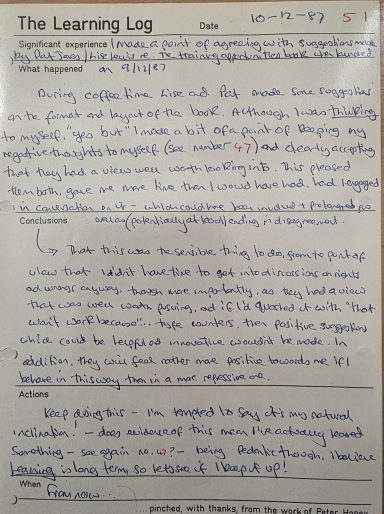 The Learning Log Date 10-12-87 51
Significant experience I made a point of agreeing with suggestions made
by Pat Jones / Lise Lewis re. The training opportunities book when
What happened on 9/12/87
During coffee time Lise and Pat made some suggestions
on the format and layout of the book. Although I was thinking
to myself, "yes but" I made a bit of a point of keeping my
negative thoughts to myself (see number 47) and clearly accepting
that they had a view well worth looking into. This pleased
them both, gave me more time than I would have had, had I engaged
in conversation on it - which could have been involved + prolonged as
Conclusions well as (potentially at least) ending in disagreement.
That this was the sensible thing to do, from the point of
view that I didn't have time to get into discussions on rights
and wrongs anyway, though more importantly, as they had a view
that was well worth pursuing, and if I'd quashed it with "that
won't work because"... type counters, then positive suggestions
which could be helpful and innovative wouldn't be made. In
addition, they will feel rather more positive towards me if I
behave in this way than in a more repressive one.
Actions
Keep doing this - I'm tempted to say it's my natural
inclination! - does evidence of this mean I've actually learned
something - see again no. 47? - being pedantic though, I believe
learning is long term so lets see if I keep it up!
When from now...
....pinched, with thanks, from the work of Peter Honey